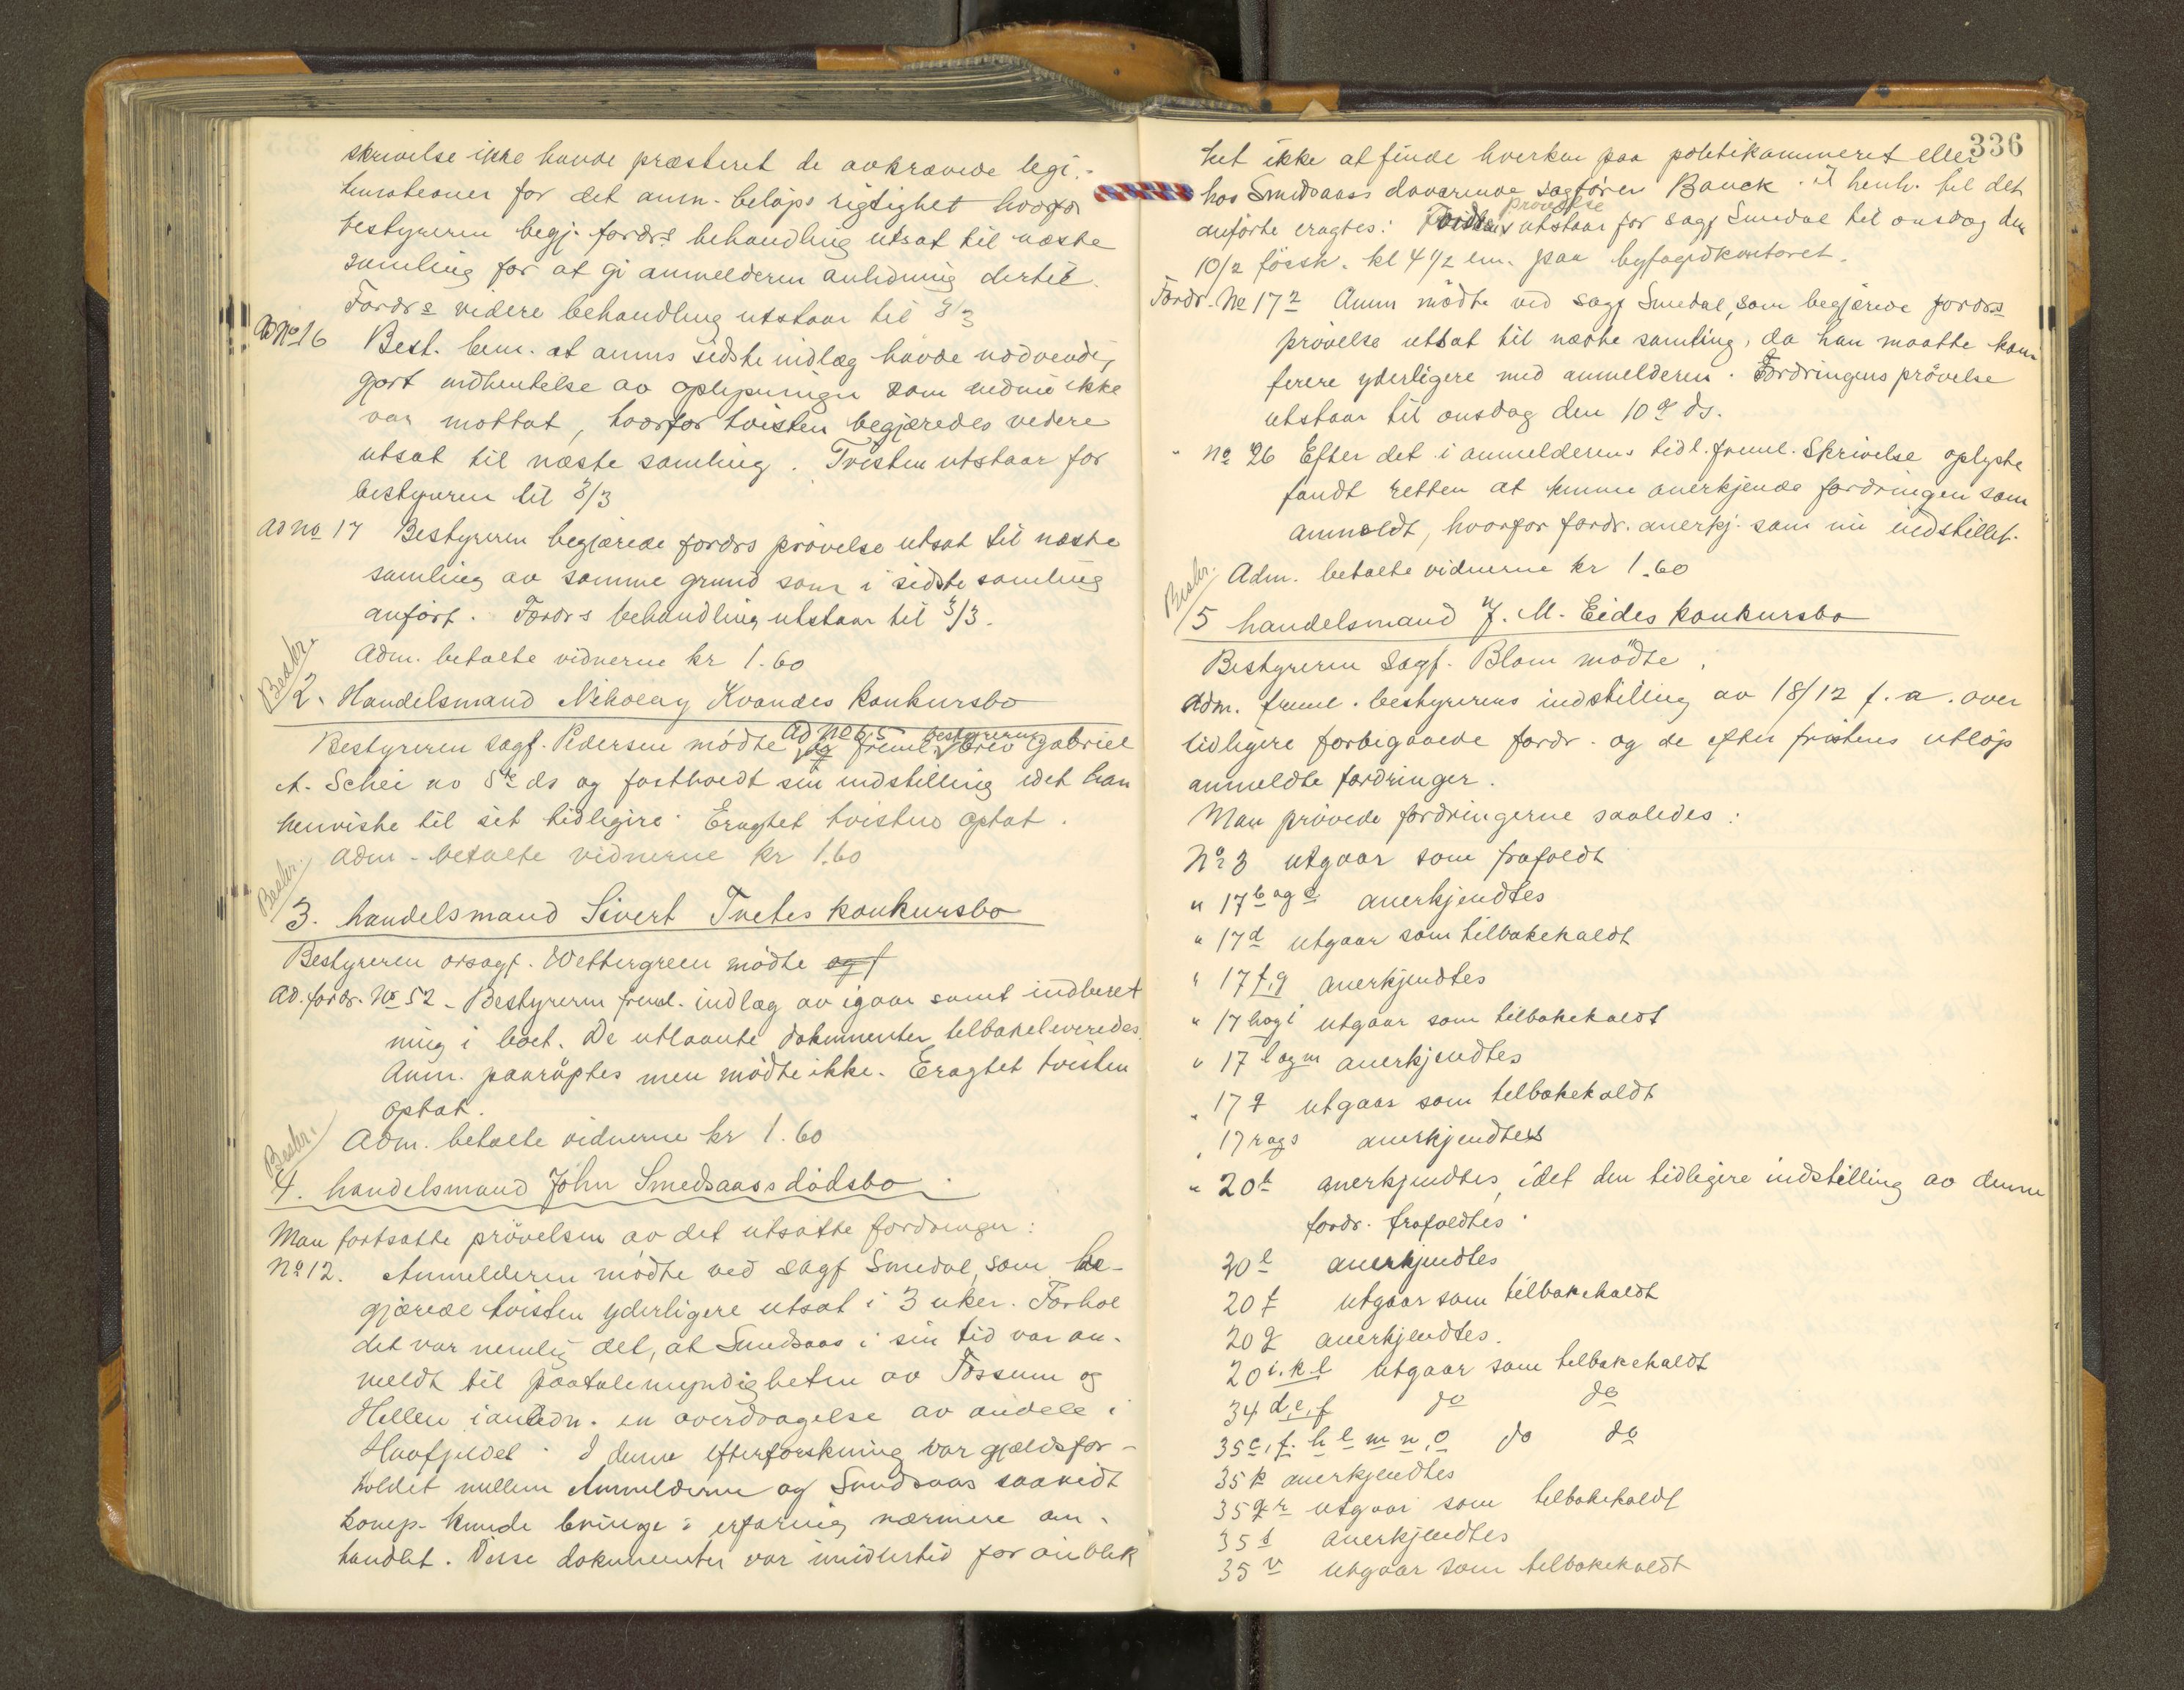 skrivelse ikke havde præsteret de avkrævede legi-
timationer for det anm. beløps rigtighet hvorfor
bestyreren begj. fordrs behandling utsat til næste
samling for at gi anmelderen anledning dertil.
Fordrs videre behandling utstaar til 3/3
Ad No 16 Best. bem. at anms sidste indlæg havde nødvendig
gjort indhentelse av oplysninger som endnu ikke
var mottat, hvorfor tvisten begjæredes videre
utsat til næste samling. Tvisten utstaar for
bestyreren til 3/3
Ad No 17 Bestyreren begjærede fordrs prøvelse utsat til næste
samling av samme grund som i sidste samling
anført. Fordrs behandling utstaar til 3/3.
Adm. betalte vidnerne kr 1.60
Beskr.
2. Handelsmand Nikolay Kvandes konkursbo
Ad No 65 bestyreren
Bestyreren sagf. Pedersen mødte og freml. brev Gabriel
A. Schei av 5te ds og fastholdt sin indstilling idet han
henviste til sit tidligere. Eragtet tvisten optat.
Adm. betalte vidnerne kr 1.60
Beskr.
3. handelsmand Sivert Tvetes konkursbo
Bestyreren orsagf. Wettergreen mødte og f
Ad. fordr. No 52 - Bestyreren freml. indlæg av igaar samt indberet
ning i boet. De utlaante dokumenter tilbakeleveredes.
Anm. paaroptes men mødte ikke. Eragtet tvisten
optat.
Adm. betalte vidnerne kr 1.60
Beskr.
4. handelsmand John Smedsaas dødsbo.
Man fortsatte prøvelsen av det utsatte fordringer:
No 12. Anmelderen mødte ved sagf Smedal, som be-
gjærede tvisten yderligere utsat i 3 uker. Forhol
det var nemlig det, at Smedsaas i sin tid var an-
meldt til paatalemyndigheten av Fossum og
Hellen i anledn. en overdragelse av andele i
. I denne efterforskning var gjeldsfor-
holdet mellem Anmelderne og Smedsaas saavidt
komp. kunde bringe i erfaring nærmere om-
handlet. Disse dokumenter var imidlertid for øieblik
336
ket ikke at finde hverken paa politikammeret eller
hos Smedsaass daværende sagfører Bauck. I henh. til det
prøvelse
anførte eragtes: utstaar for sagf Smedal til onsdag den
10/2 førsk. kl 4 1/2 em. paa byfogdkontoret.
Fordr. No 17 Anm mødte ved sagf Smedal, som begjærede fordrs
prøvelse utsat til næste samling, da han maatte kon
ferere yderligere med anmelderen. Fordringens prøvelse
utstaar til onsdag den 10de ds.
" No 26 Efter det i anmelderens tidl. freml. skrivelse oplyste
fandt retten at kunne anerkjende fordringen som
anmeldt, hvorfor fordr. anerkj. som nu indstillet.
Adm. betalte vidnerne kr 1.60
Beskr.
5 handelsmand J. M. Eides konkursbo
Bestyreren sagf. Blom mødte.
Adm. freml. bestyrerens indstilling av 18/12 f. a. over
tidligere forbigaaede fordr. og de efter fristens utløp
anmeldte fordringer.
Man prøvede fordringerne saaledes:
No 3 utgaar som frafaldt
" 17 b og e anerkjendtes
" 17 d utgaar som tilbakekaldt
" 17 f, g anerkjendtes
" 17 h og i utgaar som tilbakekaldt
" 17 l og m anerkjendtes
" 17 q utgaar som tilbakekaldt
" 17 r og s anerkjendtes
" 20 b anerkjendtes, idet den tidligere indstilling av denne
fordr. frafaldtes.
20 e anerkjendtes
20 f utgaar som tilbakekaldt
20 g anerkjendtes.
20 i. k. l utgaar som tilbakekaldt
34 d, e, f do do
35 c, f. h l m n, o do do
35 p anerkjendtes
35 q r utgaar som tilbakekaldt
35 s anerkjendtes
35 v utgaar som tilbakekaldt